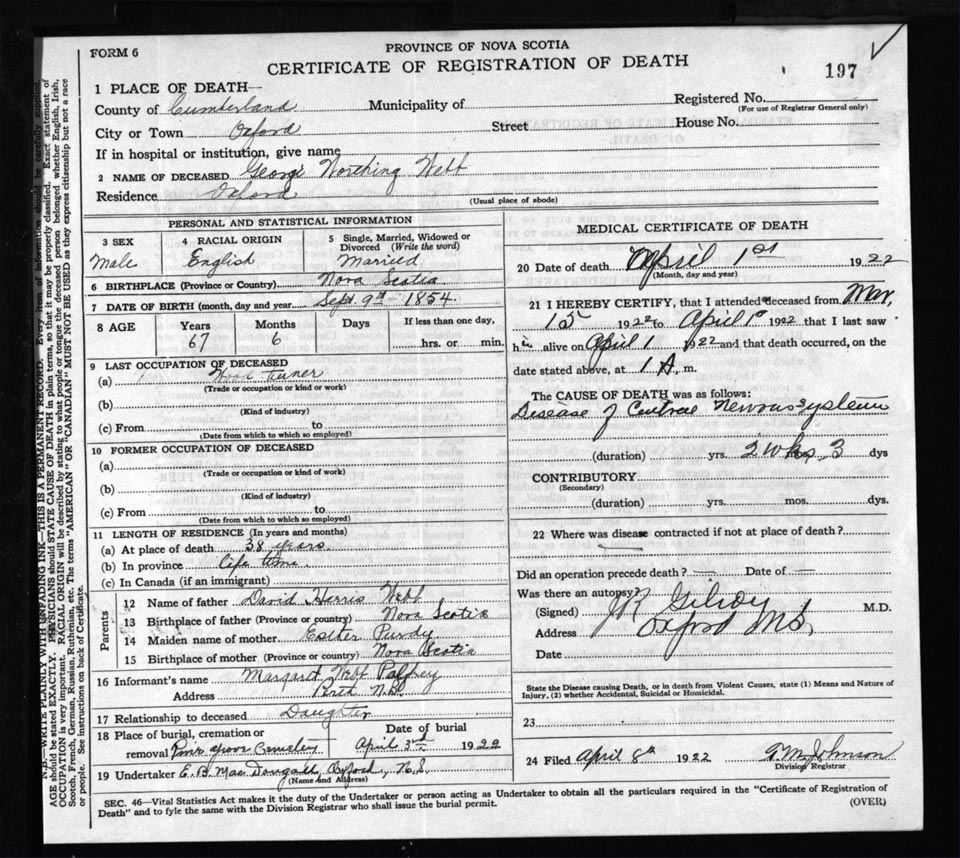 FORM 6
PROVINCE OF NOVA SCOTIA
CERTIFICATE OF REGISTRATION OF DEATH
197
1 PLACE OF DEATH—
County of Cumberland Municipality of Registered No.
(For use of Registrar General only)
City or Town Oxford Street House No.
If in hospital or institution, give name
2 NAME OF DECEASED George Worthing Webb
Residence Oxford
(Usual place of abode)
PERSONAL AND STATISTICAL INFORMATION
3 SEX 4 RACIAL ORIGIN 5 Single, Married, Widowed or Divorced (Write the word)
Male English Married
6 BIRTHPLACE (Province or Country) Nova Scotia
7 DATE OF BIRTH (month, day and year) Sept. 9th 1854.
8 AGE Years Months Days If less than one day,
67 6 hrs. or min.
9 LAST OCCUPATION OF DECEASED
(a) Wood turner
(Trade or occupation or kind or work)
(b)
(Kind of industry)
(c) From to
(Date from which to which so employed)
10 FORMER OCCUPATION OF DECEASED
(a)
(Trade or occupation or kind of work)
(b)
(Kind of industry)
(c) From to
(Date from which to which so employed)
11 LENGTH OF RESIDENCE (In years and months)
(a) At place of death 38 years
(b) In province life time.
(c) In Canada (if an immigrant)
Parents
12 Name of father David Harris Webb
13 Birthplace of father (Province or country) Nova Scotia
14 Maiden name of mother Esther Purdy
15 Birthplace of mother (Province or country) Nova Scotia
16 Informant's name Margaret Webb Palfrey
Address Perth N.B.
17 Relationship to deceased Daughter
18 Place of burial, cremation or Date of burial
removal Pine grove Cemetery April 3rd 1922
19 Undertaker E. B. MacDougall, Oxford, N.S.
(Name and Address)
MEDICAL CERTIFICATE OF DEATH
20 Date of death April 1st 1922
(Month, day and year)
21 I HEREBY CERTIFY, that I attended deceased from Mar.
15 1922 to April 1st 1922 that I last saw
him alive on April 1 1922 and that death occurred, on the
date stated above, at 1 A. m.
The CAUSE OF DEATH was as follows:
Disease of Central Nervous System
(duration) yrs. 2 wks mos. 3 dys
CONTRIBUTORY
(Secondary)
(duration) yrs. mos. dys.
22 Where was disease contracted if not at place of death?
Did an operation precede death? — Date of —
Was there an autopsy?
(Signed) J R Gilroy M.D.
Address Oxford N.S.
Date
State the Disease causing Death, or in death from Violent Causes, state (1) Means and Nature of
Injury, (2) whether Accidental, Suicidal or Homicidal.
23
24 Filed April 8th 1922 Johnson
Division Registrar
SEC. 46—Vital Statistics Act makes it the duty of the Undertaker or person acting as Undertaker to obtain all the particulars required in the "Certificate of Registration of
Death" and to fyle the same with the Division Registrar who shall issue the burial permit.
(OVER)
N.B.—WRITE PLAINLY WITH UNFADING INK—THIS IS A PERMANENT RECORD. Every item of information should be carefully supplied.
AGE should be stated EXACTLY. PHYSICIANS should STATE CAUSE OF DEATH in plain terms, so that it may be properly classified. Exact statement of
OCCUPATION is very important. RACIAL ORIGIN will be described by stating to what people or tongue the deceased person belonged whether English, Irish,
Scotch, French, German, Russian, Ruthenian, etc. The terms "AMERICAN" OR "CANADIAN" MUST NOT BE USED as they express citizenship but not a race
or people. See instructions on back of Certificate.